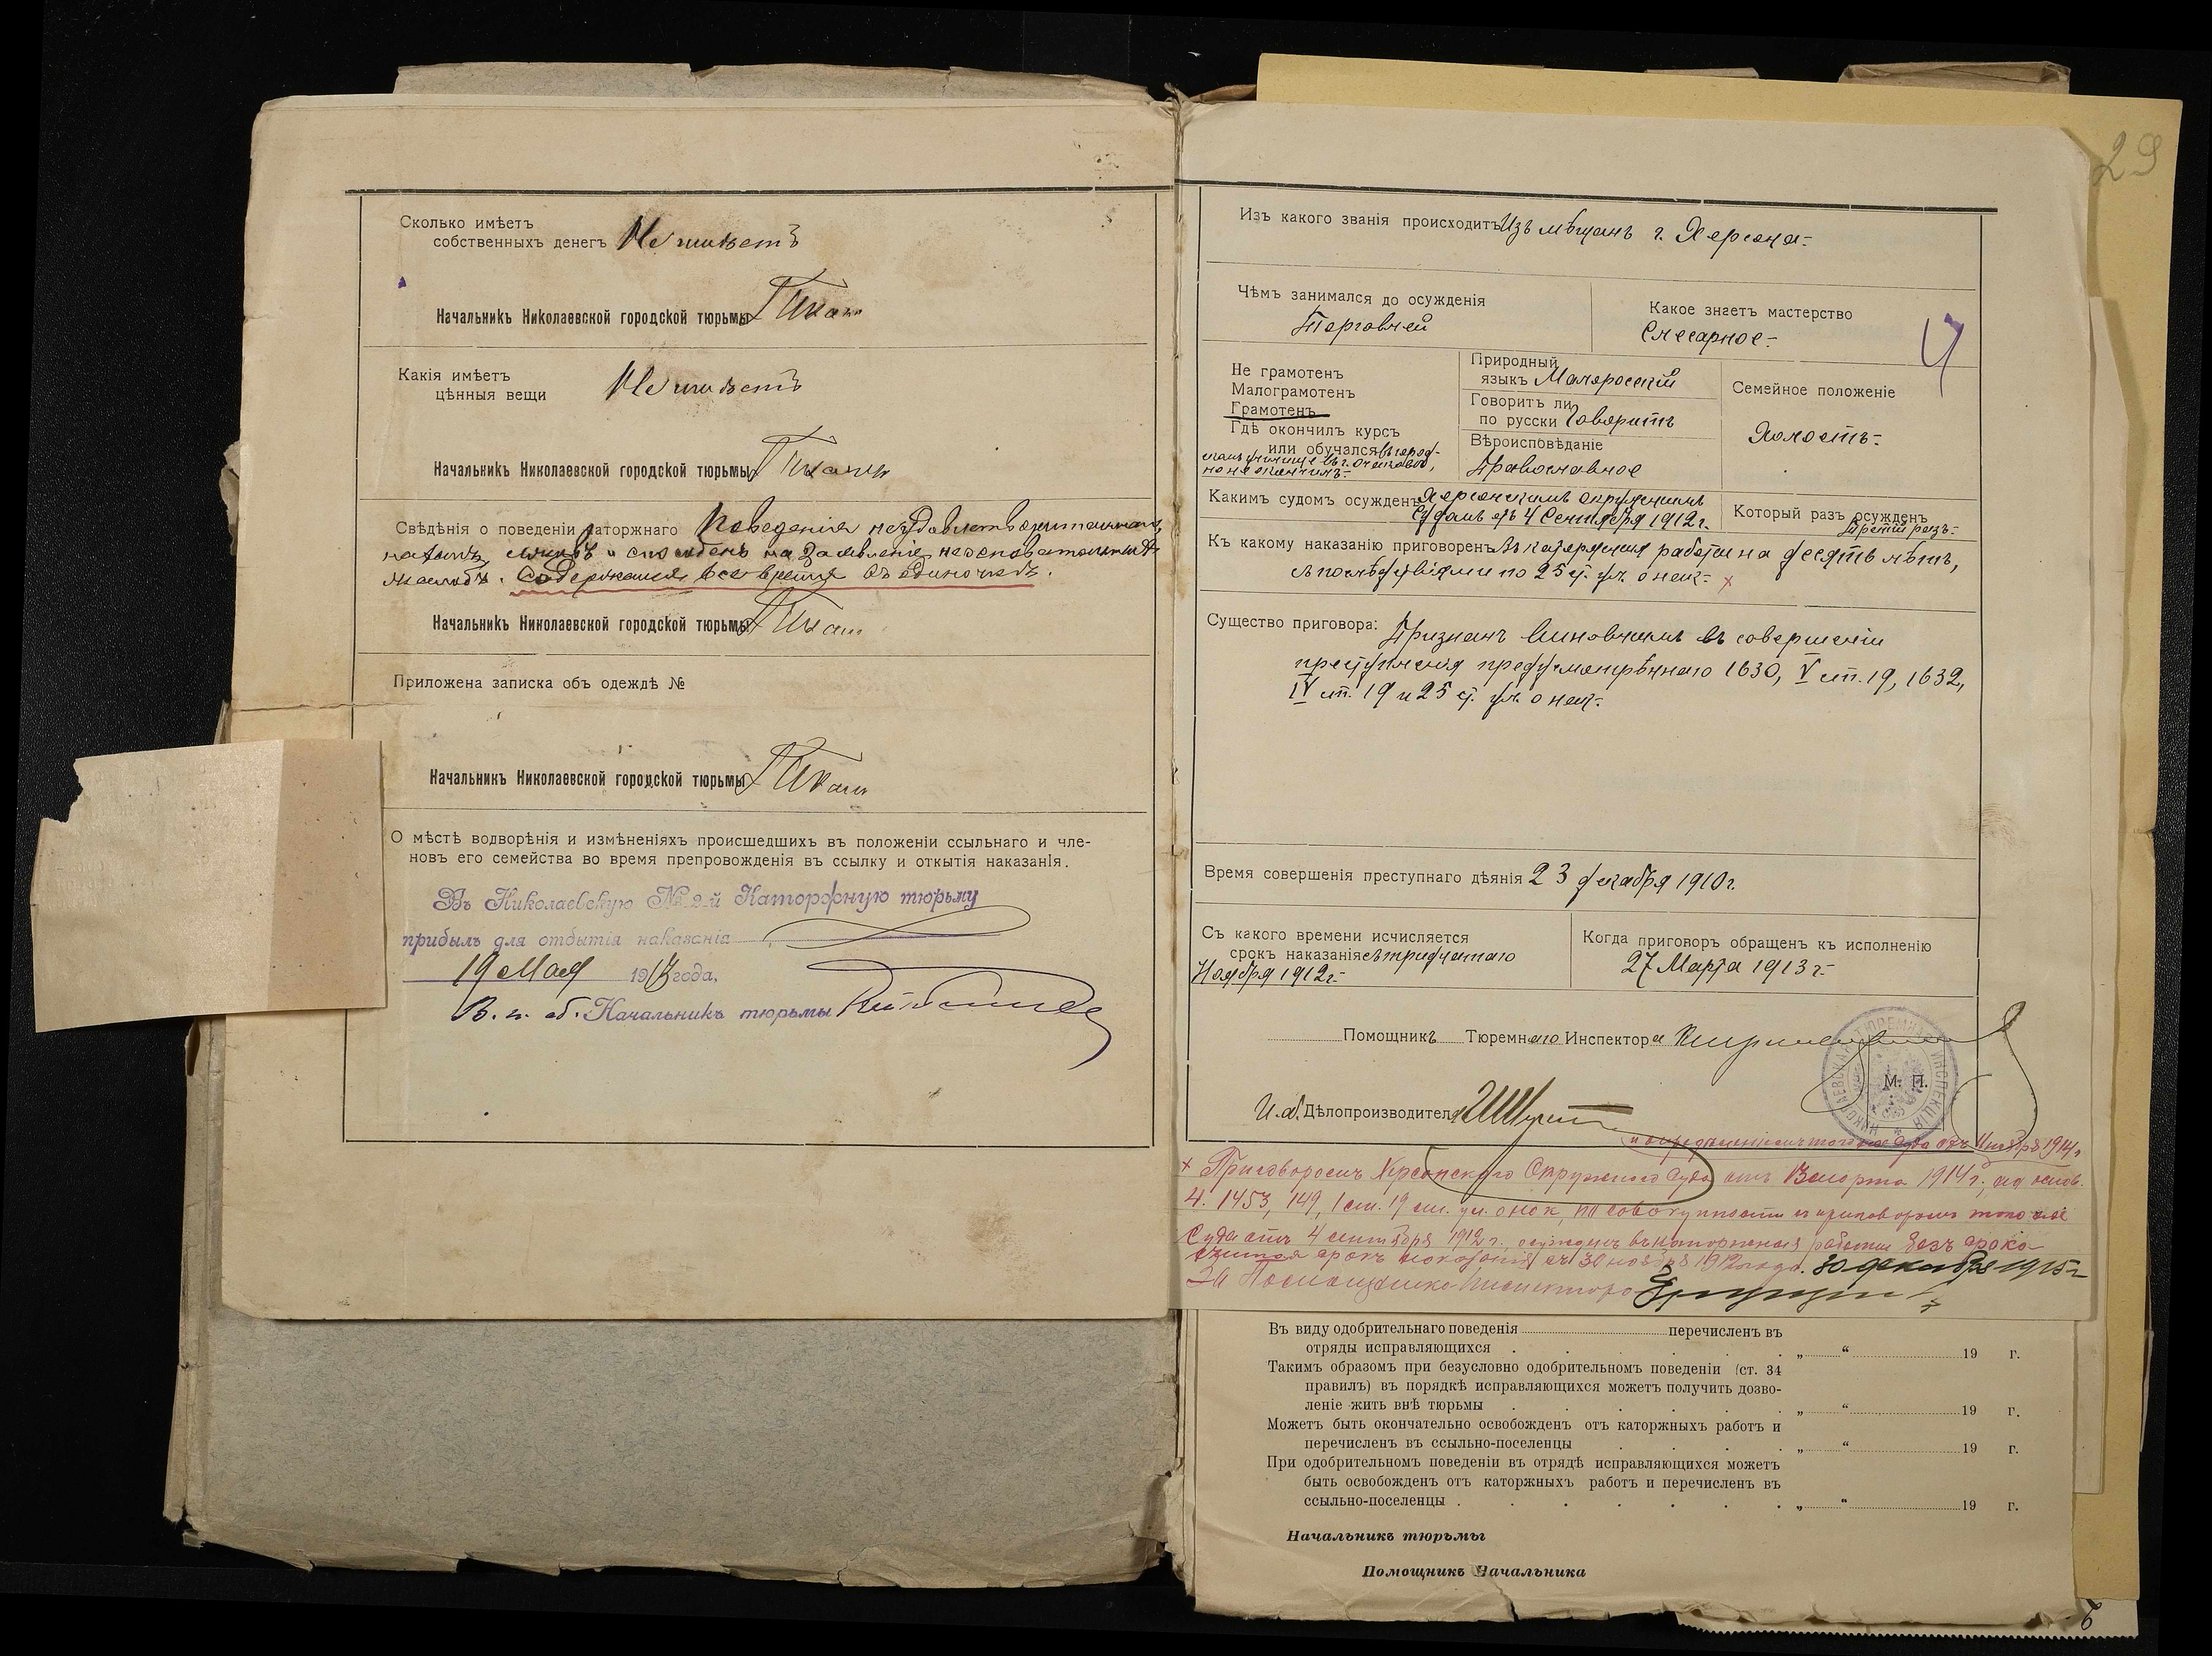 Сколько имѣетъ
собственныхъ денегъ Не имѣетъ
Начальникъ Николаевской городской тюрьмы
Какія имѣетъ
цѣнныя вещи Не имѣетъ
Начальникъ Николаевской городской тюрьмы
Свѣдѣнія о поведеніи каторжнаго Поведенія неудовлетворительнаго,
и на заявленіе неосновательныхъ
жалобъ. Содержался все время въ одиночкѣ.
Начальникъ Николаевской городской тюрьмы
Приложена записка объ одеждѣ №
Начальникъ Николаевской городской тюрьмы
О мѣстѣ водворѣнія и измѣненіяхъ происшедшихъ въ положеніи ссыльнаго и чле-
новъ его семейства во время препровожденія въ ссылку и откытія наказанія.
Въ Николаевскую № 2-й Каторжную тюрьму
прибылъ для отбытія наказанія
19 Мая 1913 года.
В. и. об. Начальникъ тюрьмы
29
Изъ какого званія происходитъ Изъ мѣщанъ г. Херсона.
Чѣмъ занимался до осужденія
Торговлей
Какое знаетъ мастерство
Слесарное.
Не грамотенъ
Малограмотенъ
Грамотенъ
Гдѣ окончилъ курсъ
или обучался въ город-
скомъ училище въ г. Очаковѣ,
но не окончилъ.
Природный
языкъ Малоросскій
Говоритъ ли
по русски Говоритъ
Вѣроисповѣданіе
Православное
Семейное положеніе
Холостъ.
Какимъ судомъ осужденъ Херсонскимъ окружнымъ
Судомъ отъ 4 Сентября 1912 г.
Который разъ осужденъ
Третій разъ.
Къ какому наказанію приговоренъ Въ каторжныя работы на десять лѣтъ,
съ послѣдствіями по 25 ст. ул. о нак. х
Существо приговора: Признанъ виновнымъ въ совершеніи
преступленія предусмотрѣннаго 1630, V ст. 19, 1632,
IV ст. 19 и 25 ст. ул. о нак.
Время совершенія преступнаго дѣянія 23 декабря 1910 г.
Съ какого времени исчисляется
срокъ наказанія съ тридцатаго
Ноября 1912 г.
Когда приговоръ обращенъ къ исполненію
27 Марта 1913 г.
Помощникъ Тюремнаго Инспектора
НИКОЛАЕВСКАЯ ТЮРЕМНАЯ ИНСПЕКЦІЯ
М. П.
И. об. Дѣлопроизводителя
и опредѣленіемъ того же Суда отъ 1914 г.
х Приговоромъ Херсонскаго Окружного Суда отъ 13 марта 1914 г., на основ.
ч. 1453, 149, 1 ст. 19 ст. ул. о нак, по совокупности съ приговоромъ того же
Суда отъ 4 сентября 1912 г., осужденъ въ каторжныя работы безъ срока
считая срокъ наказанія съ 30 ноября 1912 года. 30 декабря 1915 г.
За Помощника Инспектора
Въ виду одобрительнаго поведенія перечисленъ въ
отряды исправляющихся . . . . . „ “ 19 г.
Такимъ образомъ при безусловно одобрительномъ поведеніи (ст. 34
правилъ) въ порядкѣ исправляющихся можетъ получить дозво-
леніе жить внѣ тюрьмы . . . . . „ “ 19 г.
Можетъ быть окончательно освобожденъ отъ каторжныхъ работъ и
перечисленъ въ ссыльно-поселенцы . . . . „ “ 19 г.
При одобрительномъ поведеніи въ отрядѣ исправляющихся можетъ
быть освобожденъ отъ каторжныхъ работъ и перечисленъ въ
ссыльно-поселенцы . . . . . . „ “ 19 г.
Начальникъ тюрьмы
Помощникъ Начальника